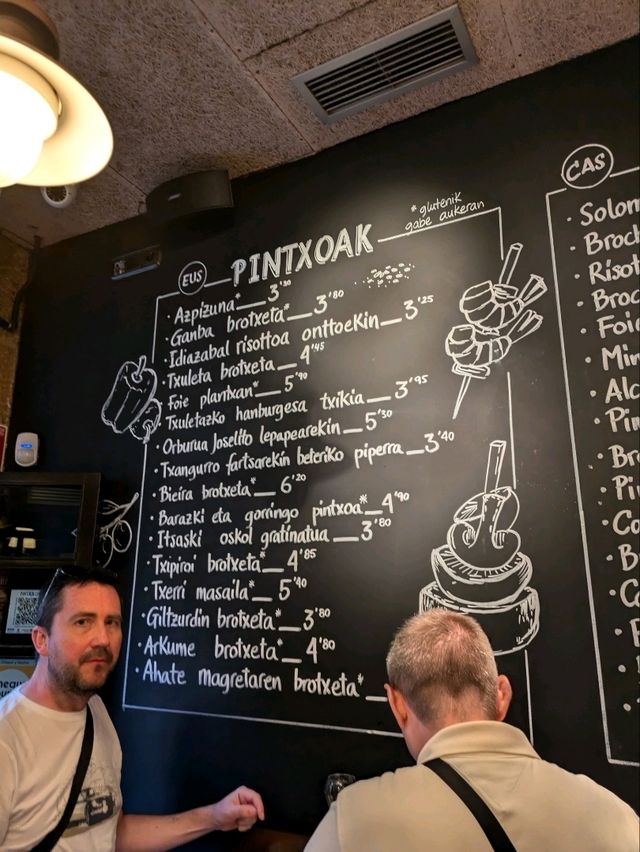 * glutenik
gabe aukeran
EUS
PINTXOAK
· Azpizuna*__3'30
· Ganba brotxeta*__3'80
· Idiazabal risottoa onttoekin__3'25
· Txuleta brotxeta__4'45
· Foie plantxan*__5'90
· Txuletazko hanburgesa txikia__3'95
· Orburua Joselito lepapearekin__5'30
· Txangurro fartsarekin beteriko piperra__3'40
· Bieira brotxeta*__6'20
· Barazki eta gorringo pintxoa*__4'90
· Itsaski oskol gratinatua__3'80
· Txipiroi brotxeta*__4'85
· Txerri masaila*__5'40
· Giltzurdin brotxeta*__3'80
· Arkume brotxeta*__4'80
· Ahate magretaren brotxeta*__
CAS
· Solom
· Broch
· Risot
· Broc
· Foie
· Min
· Alc
· Pin
· Br
· Pi
· Co
· B
· G